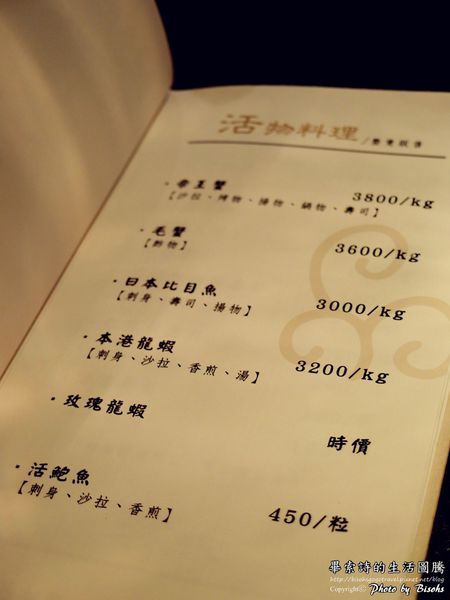 活物料理/整隻販售
·帝王蟹 3800/kg
【沙拉、烤物、揚物、鍋物、壽司】
·毛蟹 3600/kg
【酢物】
·日本比目魚 3000/kg
【刺身、壽司、揚物】
·本港龍蝦 3200/kg
【刺身、沙拉、香煎、湯】
·玫瑰龍蝦 時價
·活鮑魚 450/粒
【刺身、沙拉、香煎】
畢索詩的生活圖騰
http://bisohsgogotravel.pixnet.net/blog
Copyright© Photo by Bisohs